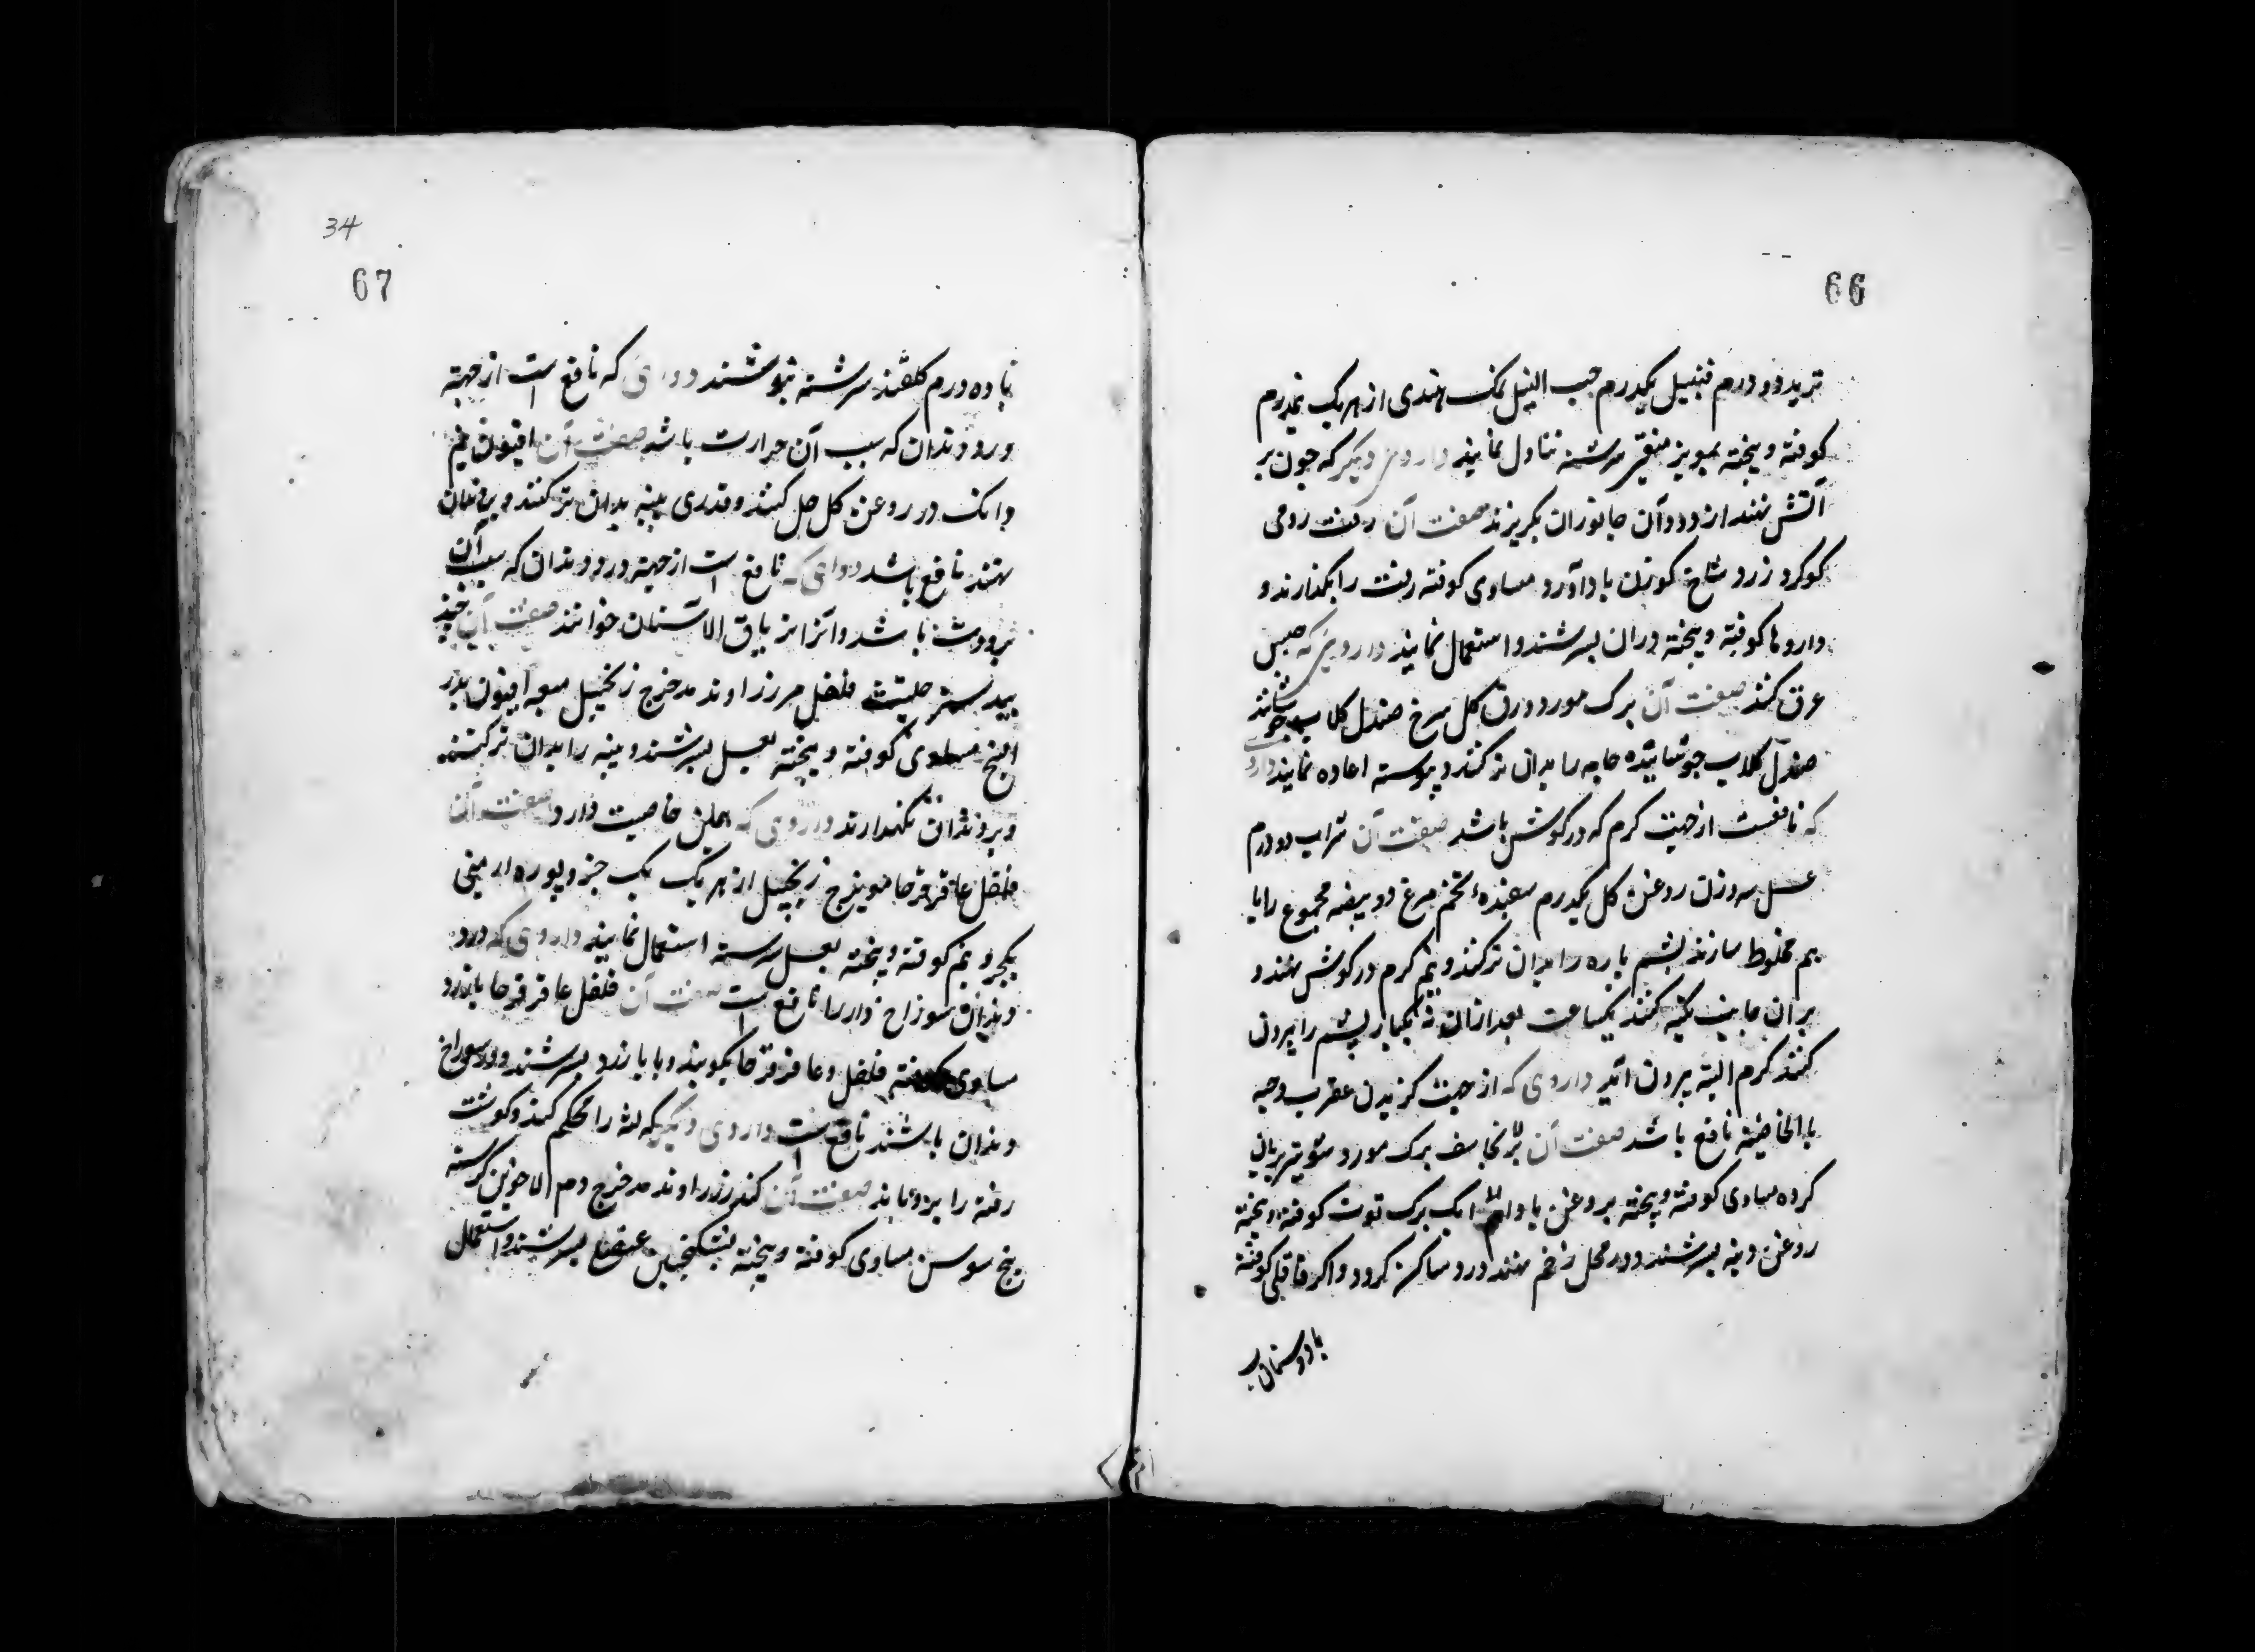 66
تربد دو درم قنبیل یکدرم حب النیل نمک هندی از هر یک نیمدرم
کوفته و بیخته بمویز منقی سرشته تناول نمایند داروی دیکر که جون بر
آتش نهند از دود آن جانوران بکریزند صفت آن زفت رومی
کوکرد زرد شاخ کوزن بادآورد مساوی کوفته زفت را بکدازند و
داروها کوفته و بیخته دران بسرشند و استعمال نمایند داروی که حبس
عرق کند صفت آن برک مورد ورق کل سرخ صندل کلاب جوشانند
صندل کلاب جوشانیده جامه را بدان تر کنند و پیوسته اعاده نمایند دارو
که نافعست از جهت کرم که در کوش باشد صفت آن شراب دو درم
عسل سه وزن روغن کل یکدرم سفیدهٔ تخم مرغ دو بیضه مجموع را با
هم مخلوط سازند پشم پاره را بدان تر کنند و نیم کرم در کوش نهند و
بر ان جانب تکیه کنند یکساعت بعد ازان به یکبار پشم را بیرون
کنند کرم البته بیرون آید داروی که از جهت کزیدن عقرب وحیه
بالخاصیه نافع باشد صفت آن برنجاسف برک مورد
کرده مساوی کوفته و بیخته بروغن برک توت کوفته و بیخته
روغن دنبه بسرشند و در محل زخم نهند درد ساکن کردد و اکر کوفته
34
67
با ده درم کلقند سرشته بنوشند دوای که نافع است از جهة
درد دندان که سبب آن حرارت باشد صفت آن افیون نیم
دانک در روغن کل حل کنند و قدری پنبه بدان تر کنند و بر دندان
نهند نافع باشد دوای که نافع است از جهة درد دندان که سبب آن
برودت باشد و آنرا تریاق الاسنان خوانند صفت آن جند
بیدستر حلتیت فلفل مر زراوند مدحرج زنجبیل میعه افیون بذر
البنج مساوی کوفته و بیخته بعسل بسرشند و پنبه را بدان تر کنند
و بر دندان نکهدارند داروی که همان خاصیت دارد صفت آن
فلفل عاقرقرحا مویزج زنجبیل از هر یک یک جزو بوره ارمنی
یکجزو نیم کوفته و بیخته بعسل سرشته استعمال نمایند داروی که درد
دندان سوراخ دار را نافع است صفت آن فلفل عاقرقرحا بارزد
مساوی فلفل و عاقرقرحا بکوبند و با بارزد بسرشند و در سوراخ
دندان باشند نافع است داروی دیکر که لثه را محکم کند و کوشت
رفته را برویاند صفت آن کندر زراوند مدحرج دم الاخوین کرسنه
بیخ سوسن مساوی کوفته و بیخته بسکنجبین عنصل بسرشند و استعمال